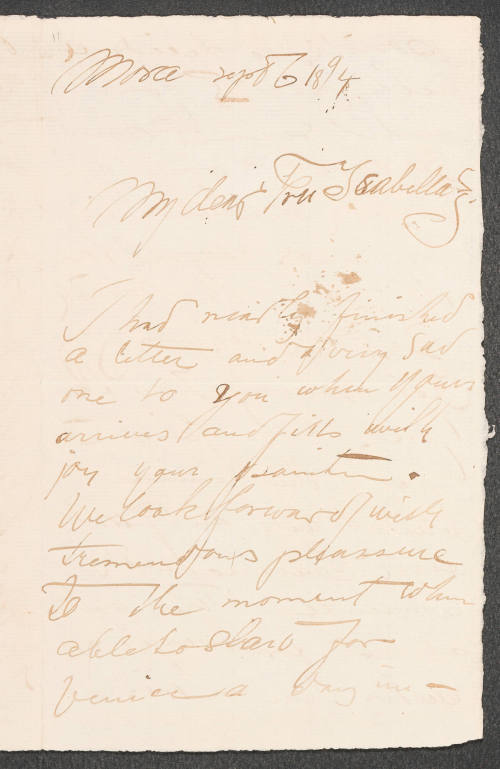 Mora sept 6 1894
My dear Fru Isabella,
I had nearly finished
a letter and a very sad
one to you when yours
arrives and fills with
joy your painter.
We look forward with
tremendous pleassure
to the moment when
able to start for
Venice a